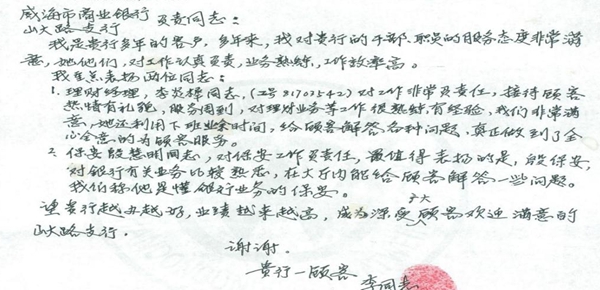 威海市商业银行
山大路支行 负责同志:
我是贵行多年的客户,多年来,我对贵行的干部、职员的服务态度非常满
意,她他们,对工作认真负责,业务熟练,工作效率高。
我重点表扬两位同志:
1. 理财经理,李燕棉同志,(工号81703542)对工作非常负责任,接待顾客
热情有礼貌,服务周到,对理财业务等工作很熟练,有经验,我们非常满
意,她还利用下班业余时间,给顾客解答各种问题,真正做到了全
心全意的为顾客服务。
2. 保安殷慧明同志,对保安工作负责任,最值得表扬的是,殷保安
对银行有关业务比较熟悉,在大厅内能给顾客解答一些问题。
我们称他是懂银行业务的保安。
望贵行越办越好,业绩越来越高,成为深受广大顾客欢迎满意的
山大路支行.
谢谢.
贵行一顾客
李同志